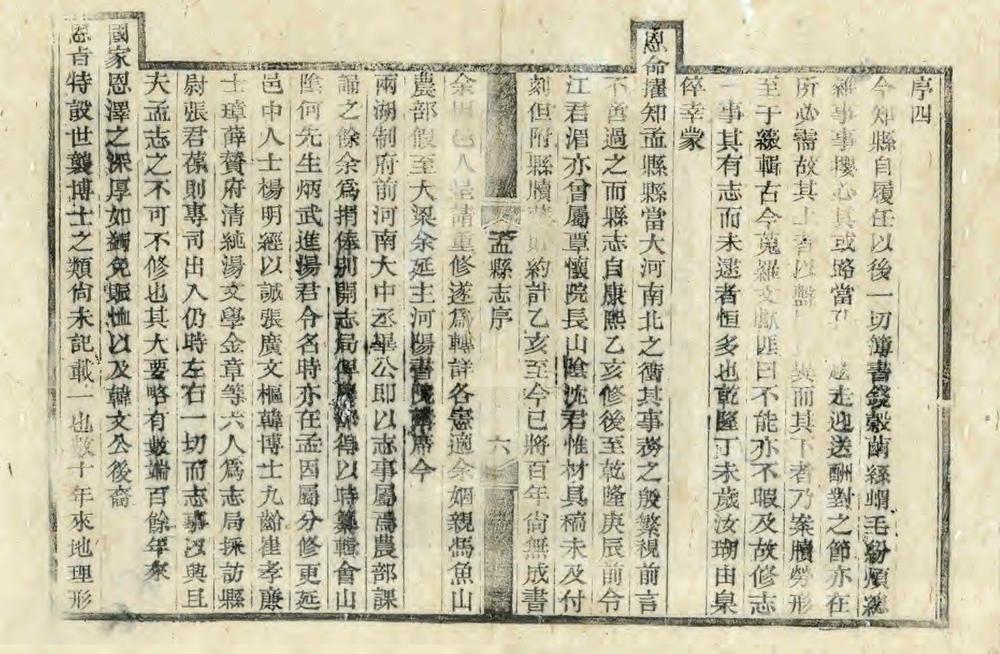 序四
今知縣自履任以後一切簿書錢穀繭絲蝟毛紛煩總
雜事事擾心其或路當孔 趨走迎送酬對之節亦在
所必需故其上者以盤 異而其下者乃案牘勞形
至于綴輯古今蒐羅文獻匪曰不能亦不暇及故修志
一事其有志而未逮者恒多也乾隆丁未歲汝瑚由臬
倅幸蒙
恩命擢知孟縣縣當大河南北之衝其事務之殷繁視前言
不啻過之而縣志自康熙乙亥修後至乾隆庚辰前令
江君湄亦曾屬覃懷院長山陰沈君惟材具槁未及付
刻但附縣牘 約計乙亥至今已將百年尙無成書
孟縣志序 六
余因邑人呈請重修遂爲轉詳各憲適余姻親馮魚山
農部假至大梁余延主河陽書院講席今
兩湖制府前河南大中丞畢公即以志事屬焉農部課
誦之餘余爲捐俸別開志局俾 得以時纂輯會山
陰何先生炳武進湯君令名時亦在孟因屬分修更延
邑中人士楊明經以誠張廣文樞韓博士九齡崔孝亷
士璋薛贊府清純湯文學金章等六人爲志局採訪縣
尉張君葆則專司出入仍時左右一切而志事以興且
夫孟志之不可不修也其大要略有數端百餘年來
國家恩澤之深厚如蠲免賑恤以及韓文公後裔
恩旨特設世襲博士之類尙未記載一也數十年來地理形